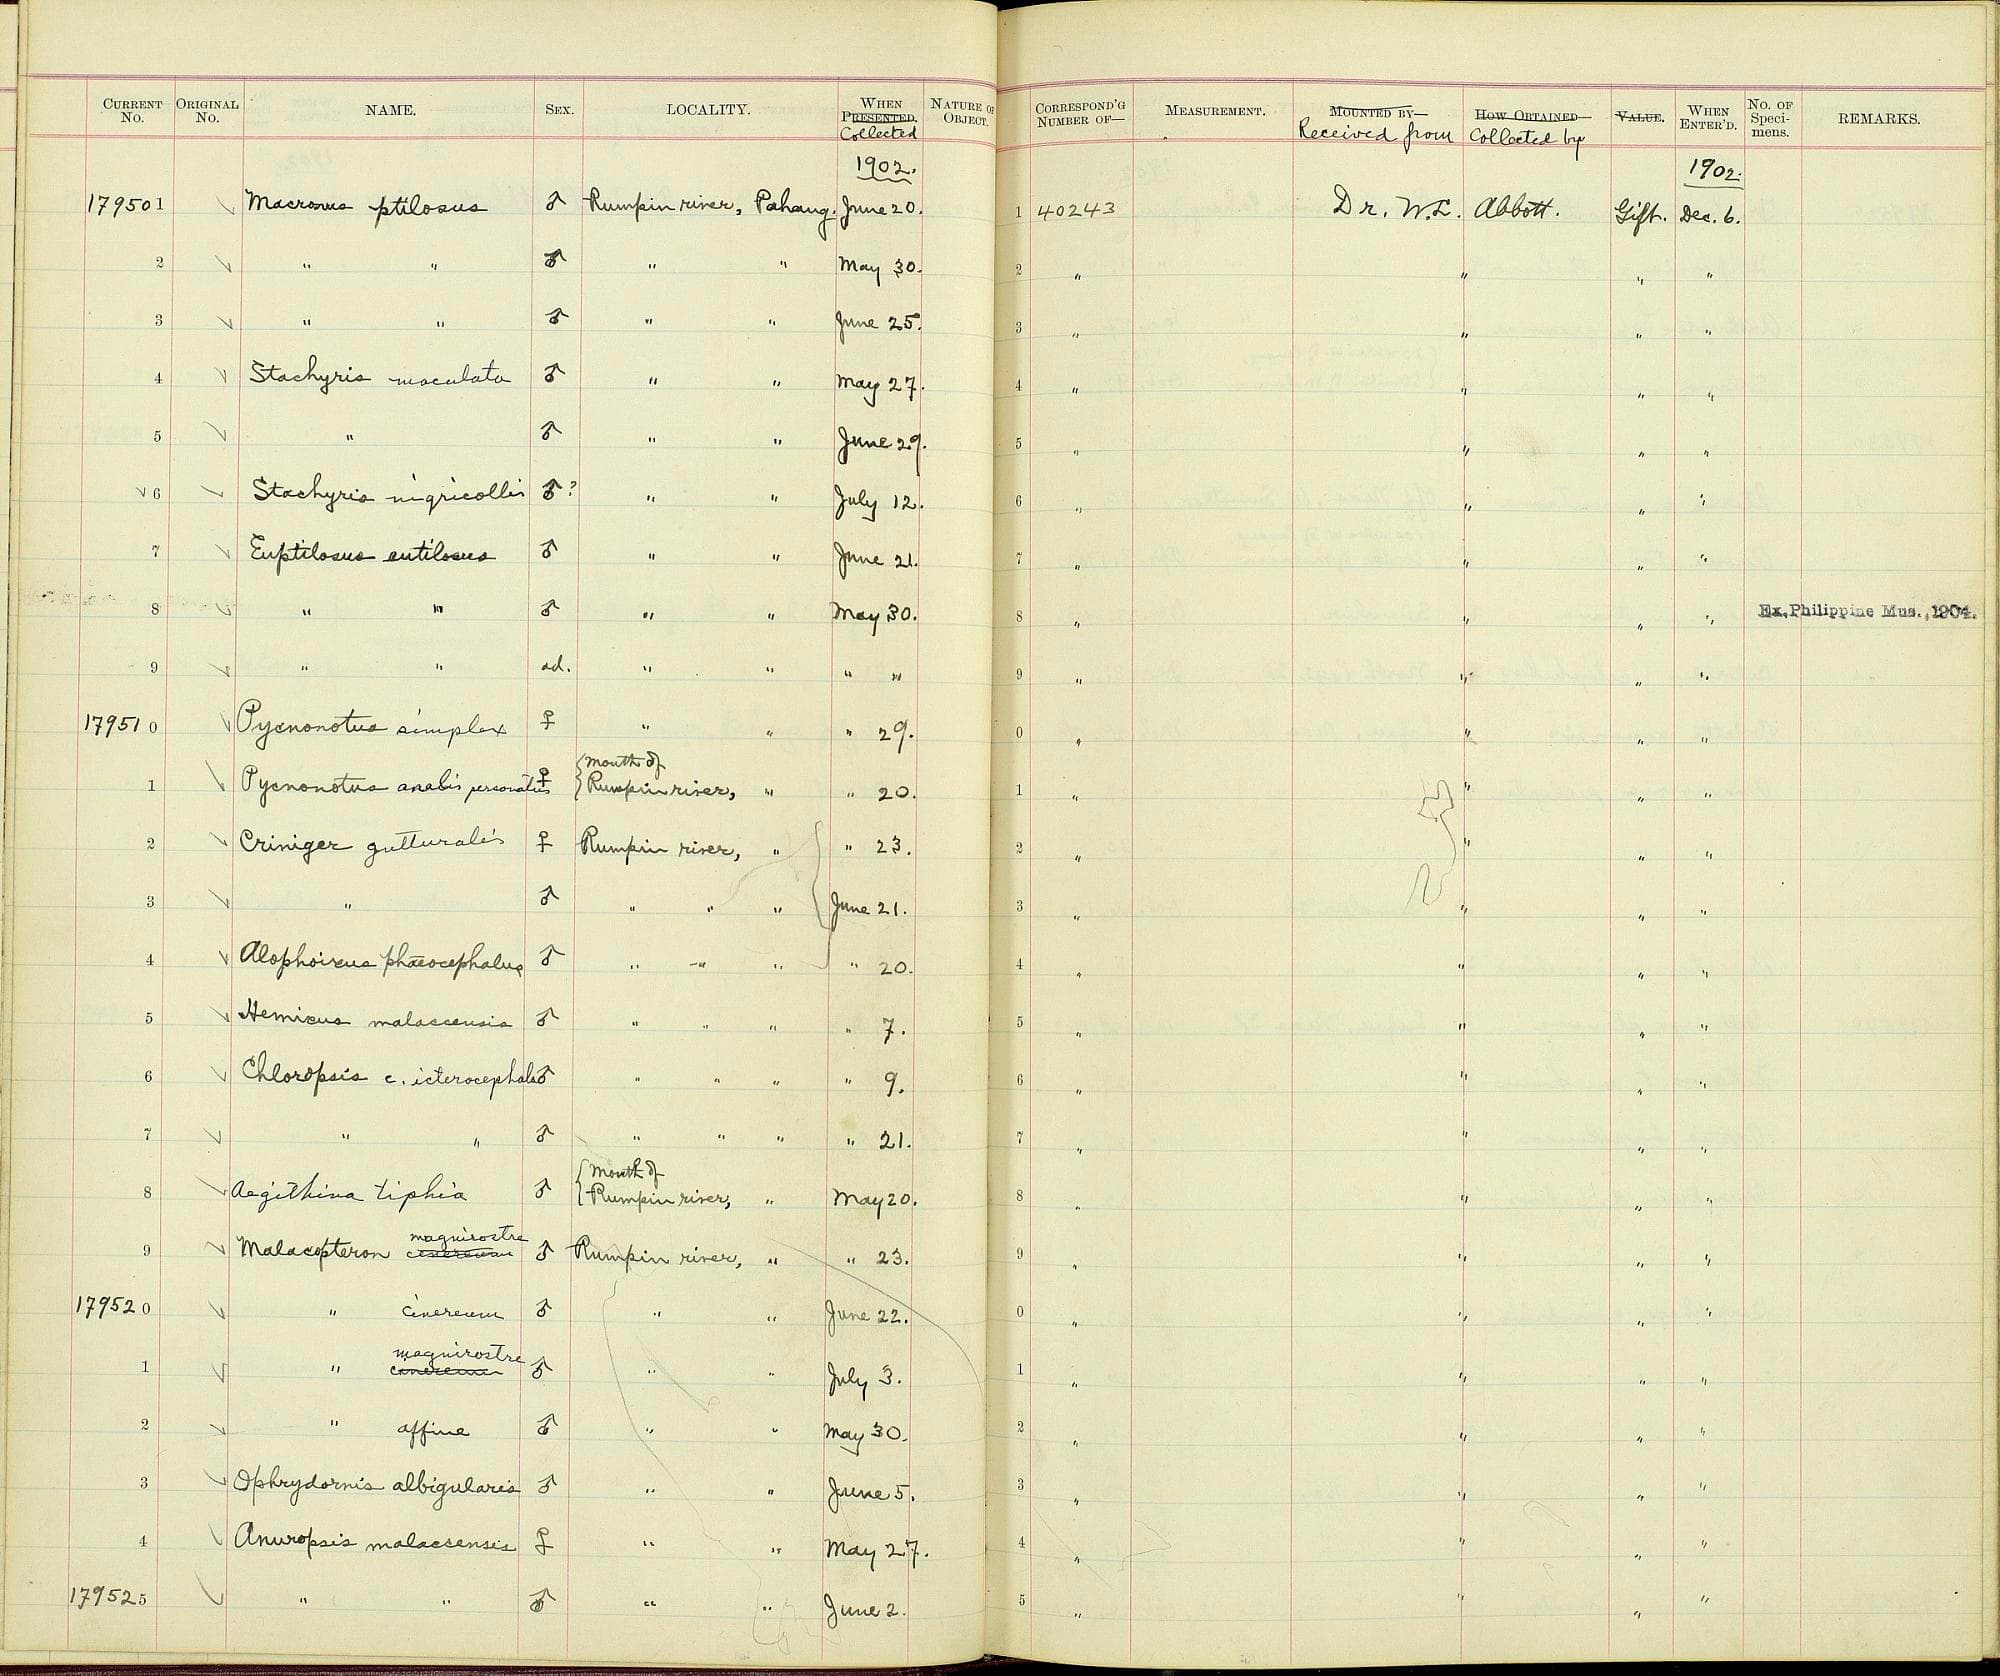 CURRENT No. ORIGINAL No. NAME. SEX. LOCALITY. WHEN PRESENTED. Collected NATURE OF OBJECT. CORRESPOND'G NUMBER OF— MEASUREMENT. MOUNTED BY— Received from HOW OBTAINED— Collected by VALUE. WHEN ENTER'D. No. OF Speci- mens. REMARKS.
1902. 1902.
179501 Macronus ptilosus ♂ Rumpin river, Pahang. June 20. 1 40243 Dr. W. L. Abbott. Gift. Dec. 6.
2 " " ♂ " " May 30. 2 " " " "
3 " " ♂ " " June 25. 3 " " " "
4 Stachyris maculata ♂ " " May 27. 4 " " " "
5 " ♂ " " June 29. 5 " " " "
√6 Stachyris nigricollis ♂? " " July 12. 6 " " " "
7 Euptilosus eutilosus ♂ " " June 21. 7 " " " "
8 " " ♂ " " May 30. 8 " " " " Ex. Philippine Mus., 1904.
9 " " ad. " " " " 9 " " " "
179510 Pycnonotus simplex ♀ " " " 29. 0 " " " "
1 Pycnonotus analis personatus ♀ { Mouth of Rumpin river, " " 20. 1 " " " "
2 Criniger gutturalis ♀ Rumpin river, " " 23. 2 " " " "
3 " ♂ " " " June 21. 3 " " " "
4 Alophoixus phaeocephalus ♂ " " " " 20. 4 " " " "
5 Hemixus malaccensis ♂ " " " " 7. 5 " " " "
6 Chloropsis c. icterocephala ♂ " " " " 9. 6 " " " "
7 " " ♂ " " " " 21. 7 " " " "
8 Aegithina tiphia ♂ { Mouth of Rumpin river, " May 20. 8 " " " "
9 Malacopteron cinereum magnirostre ♂ Rumpin river, " " 23. 9 " " " "
179520 " cinereum ♂ " " June 22. 0 " " " "
1 " cinereum magnirostre ♂ " " July 3. 1 " " " "
2 " affine ♂ " " May 30. 2 " " " "
3 Ophrydornis albigularis ♂ " " June 5. 3 " " " "
4 Anuropsis malaccensis ♀ " " May 27. 4 " " " "
179525 " " ♂ " " June 2. 5 " " " "